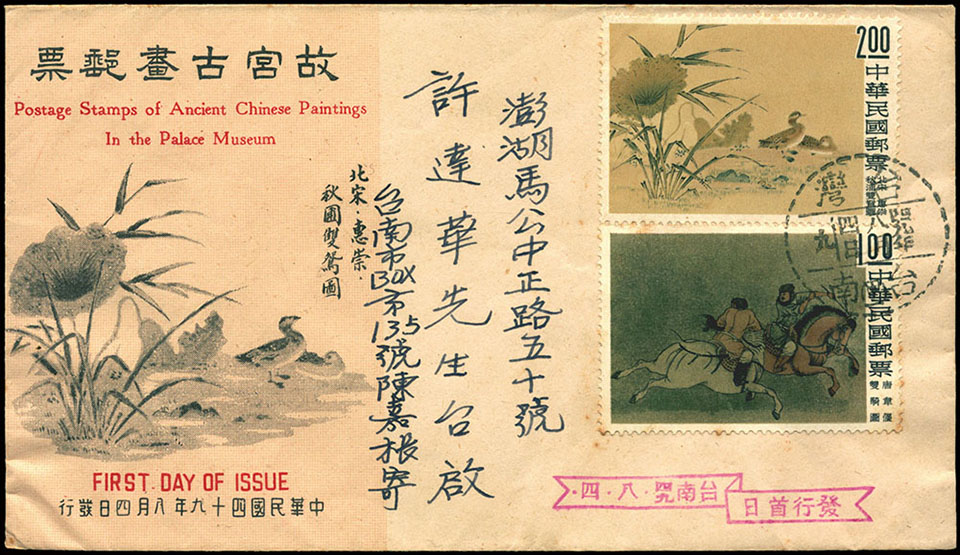 故宮古畫郵票
Postage Stamps of Ancient Chinese Paintings
In the Palace Museum
北宋·惠崇·
秋圃雙鴛圖
FIRST DAY OF ISSUE
中華民國四十九年八月四日發行
澎湖馬公中正路五十號
許達華先生台啟
台南市BOX市135號陳嘉根寄
2.00
中華民國郵票
1.00
中華民國郵票
唐韋偃
雙騎圖
發行首日
台南·四九·八·四·